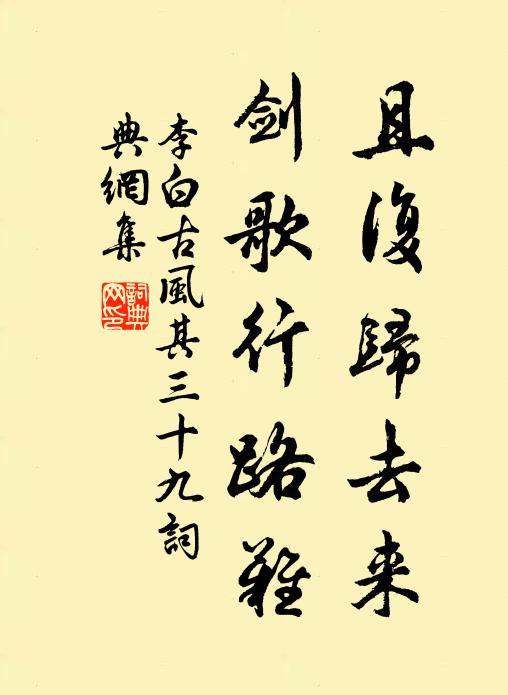 且復歸去来
剑歌行路難
李白古風其三十九詞
典網集
詞典网印